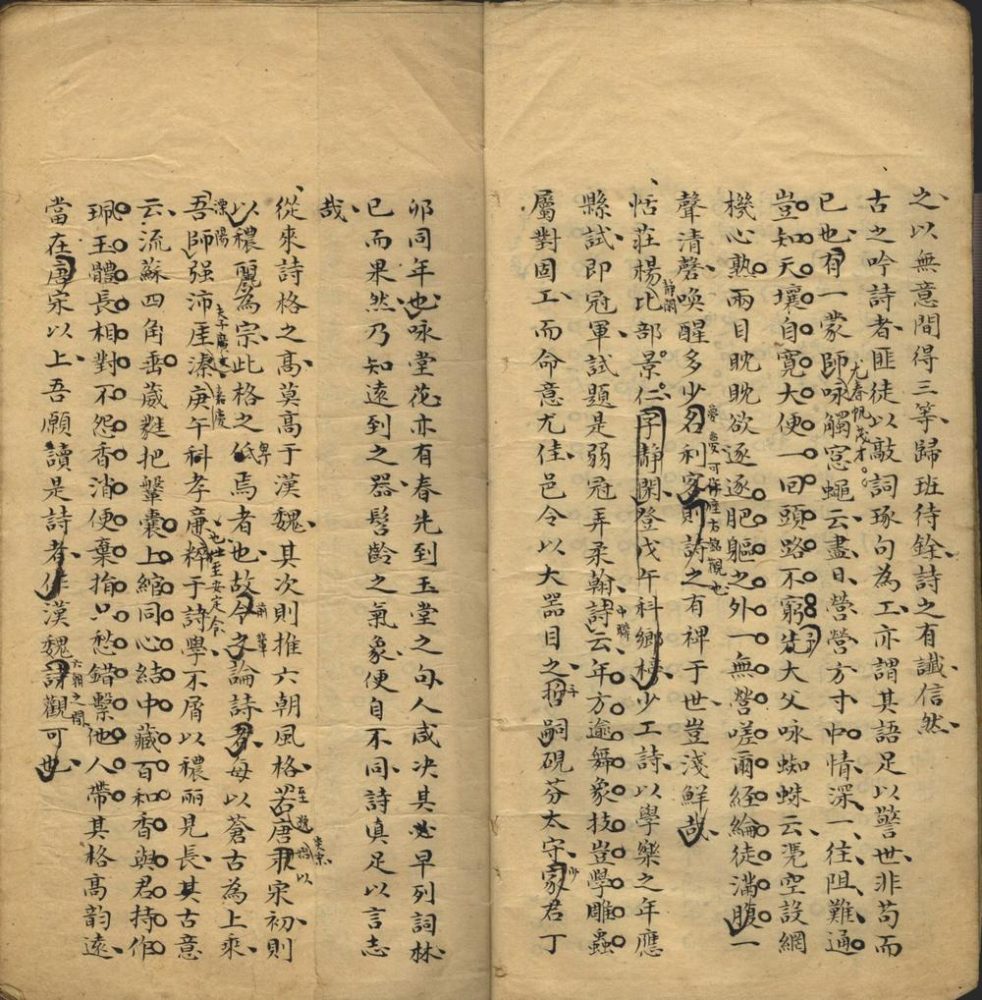 之以無意間得三等歸班待銓詩之有讖信然
古之吟詩者匪徒以敲詞琢句為工亦謂其語足以警世非苟而
已也有一蒙師咏觸窓蠅云盡日營營方寸中情深一往阻難通
尤春帆茂才
豈知天壤自寬大便一回頭路不窮先大父咏蜘蛛云憑空設網
機心熟兩目眈眈欲逐逐肥軀之外一無營嗟爾經綸徒滿腹一
聲清磬喚醒多少名利客則詩之有裨于世豈淺鮮哉
可作座右銘觀也
恬莊楊比部景仁字靜閑登戊午科鄉榜少工詩以學樂之年應
靜閑
縣試即冠軍試題是弱冠弄柔翰詩云年方逾舞象技豈學雕蟲
中聯
屬對固工而命意尤佳邑令以大器目之哲嗣硯芬太守家君丁
子
少
卯同年也咏堂花亦有春先到玉堂之句人咸决其必早列詞林
已而果然乃知遠到之器髫齡之氣象便自不同詩真足以言志
哉
從來詩格之高莫高于漢魏其次則推六朝風格若唐季宋初則
至趙
以
以穠麗為宗此格之低焉者也故今之論詩者每以蒼古為上乘
卑
吾師强沛厓溱庚午科孝廉粹于詩學不屑以穠丽見長其古意
溧陽
夫子
嘉慶
也世至安定令
云流蘇四角垂葳蕤把鞶囊上綰同心結中藏百和香與君持作
珮玉體長相對不怨香消便棄捐只愁錯繫他人帶其格高韵遠
當在唐宋以上吾願讀是詩者作漢魏詩觀可也
六朝之間